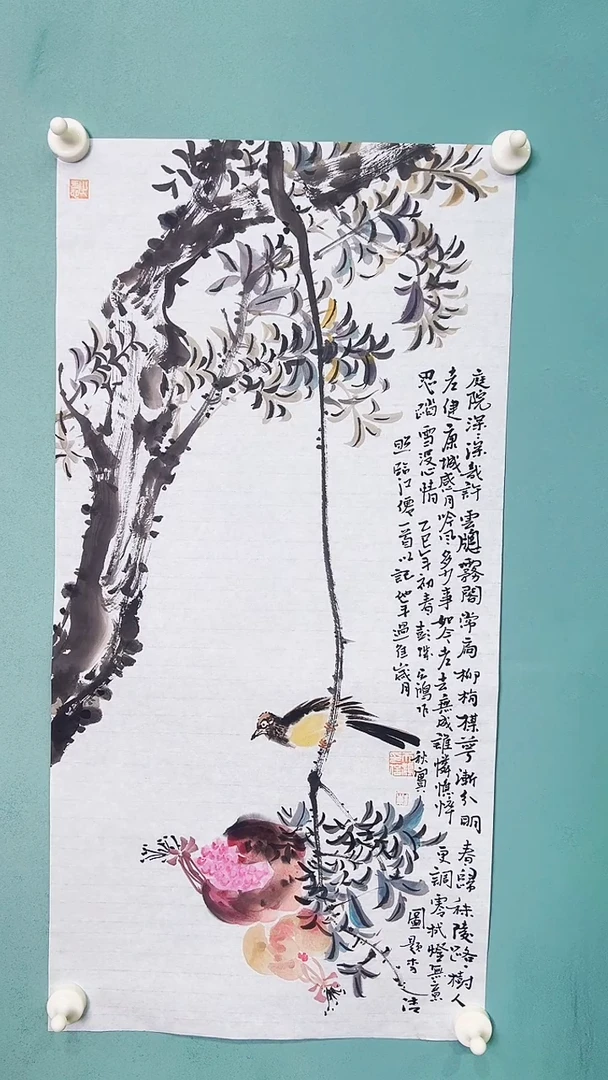 庭院深深深幾許雲牕霧閣常扃柳梢楳萼漸分明春歸秣陵路樹人
老健康城感月吟風多少事如今老去無成誰憐憔悴更調零試燈無意
思踏雪没心情乙巳年初春彭城鴻作秋實圖題李清
照臨江僊一首以記年過往歲月